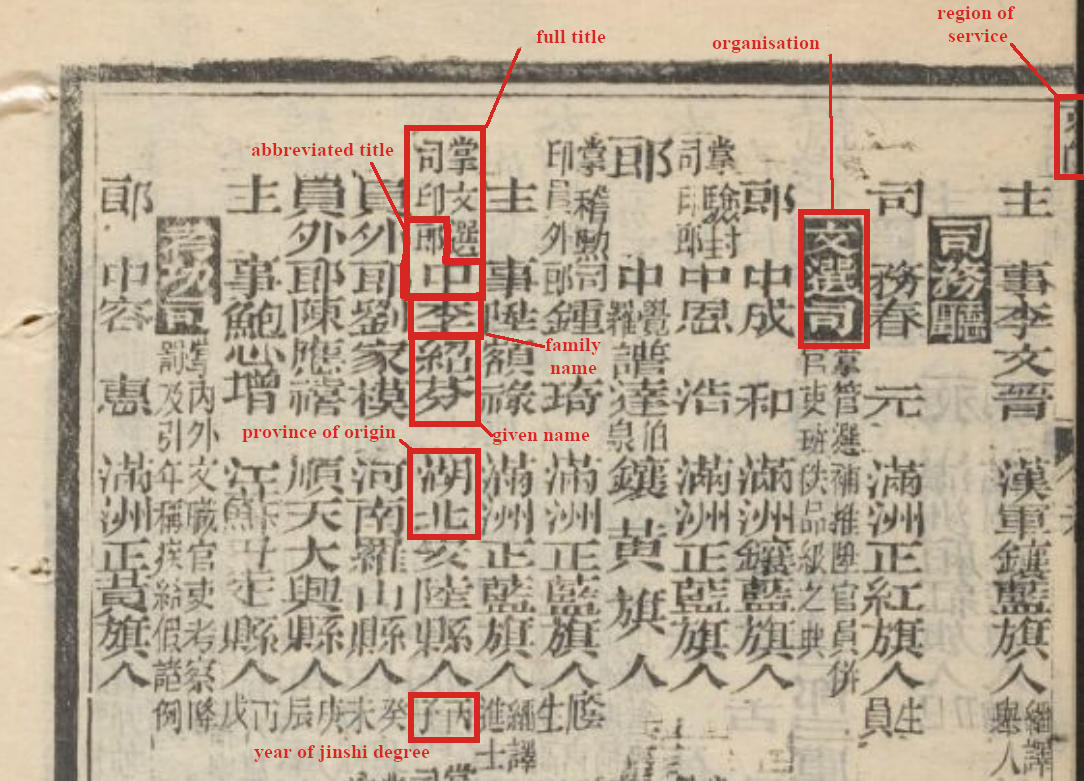 full title
organisation
region of service
abbreviated title
family name
given name
province of origin
year of jinshi degree
主事李文晉漢軍鑲藍旗人繙譯舉人
司務廳
司務春元滿洲正紅旗人生員
文選司掌管選補推陞官員併官吏班秩品級之典
郎中成和滿洲鑲藍旗人
掌驗封司印郎中恩浩滿洲正藍旗人
郎中覺羅譜達伯泉鑲黃旗人
掌稽勳司印員外郎鍾琦滿洲正藍旗人廕生
主事陞額祿滿洲正藍旗人繙譯進士
掌文選司印郎中李紹芬湖北安陸縣人丙子
員外郎劉家模河南羅山縣人癸未
員外郎陳應禧順天大興縣人庚辰
主事鮑心增江蘇丹徒縣人丙戌
考功司掌內外文職官吏考察降罰及引年稱疾給假諸例
郎中容惠滿洲正黃旗人